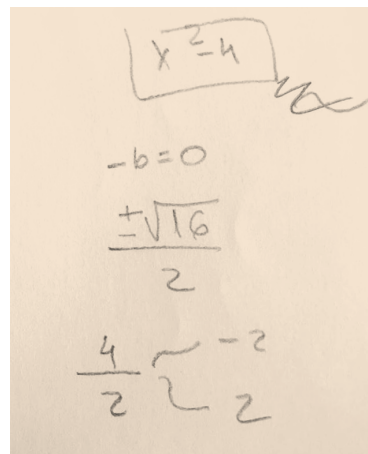 x²-4
-b=0
±√16
2
4/2 -2
2